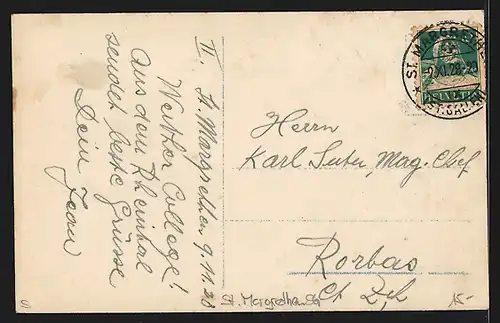 II. St. Margrethen 9.11.28
Werther College!
Aus dem Rheintal
sendet beste Grüsse
Dein Jean
ST. MARGRETHEN
HELVETIA
Herrn
Karl Suter, Mag. Chef
Rorbas
Ct Zch
St. Margrethen SG